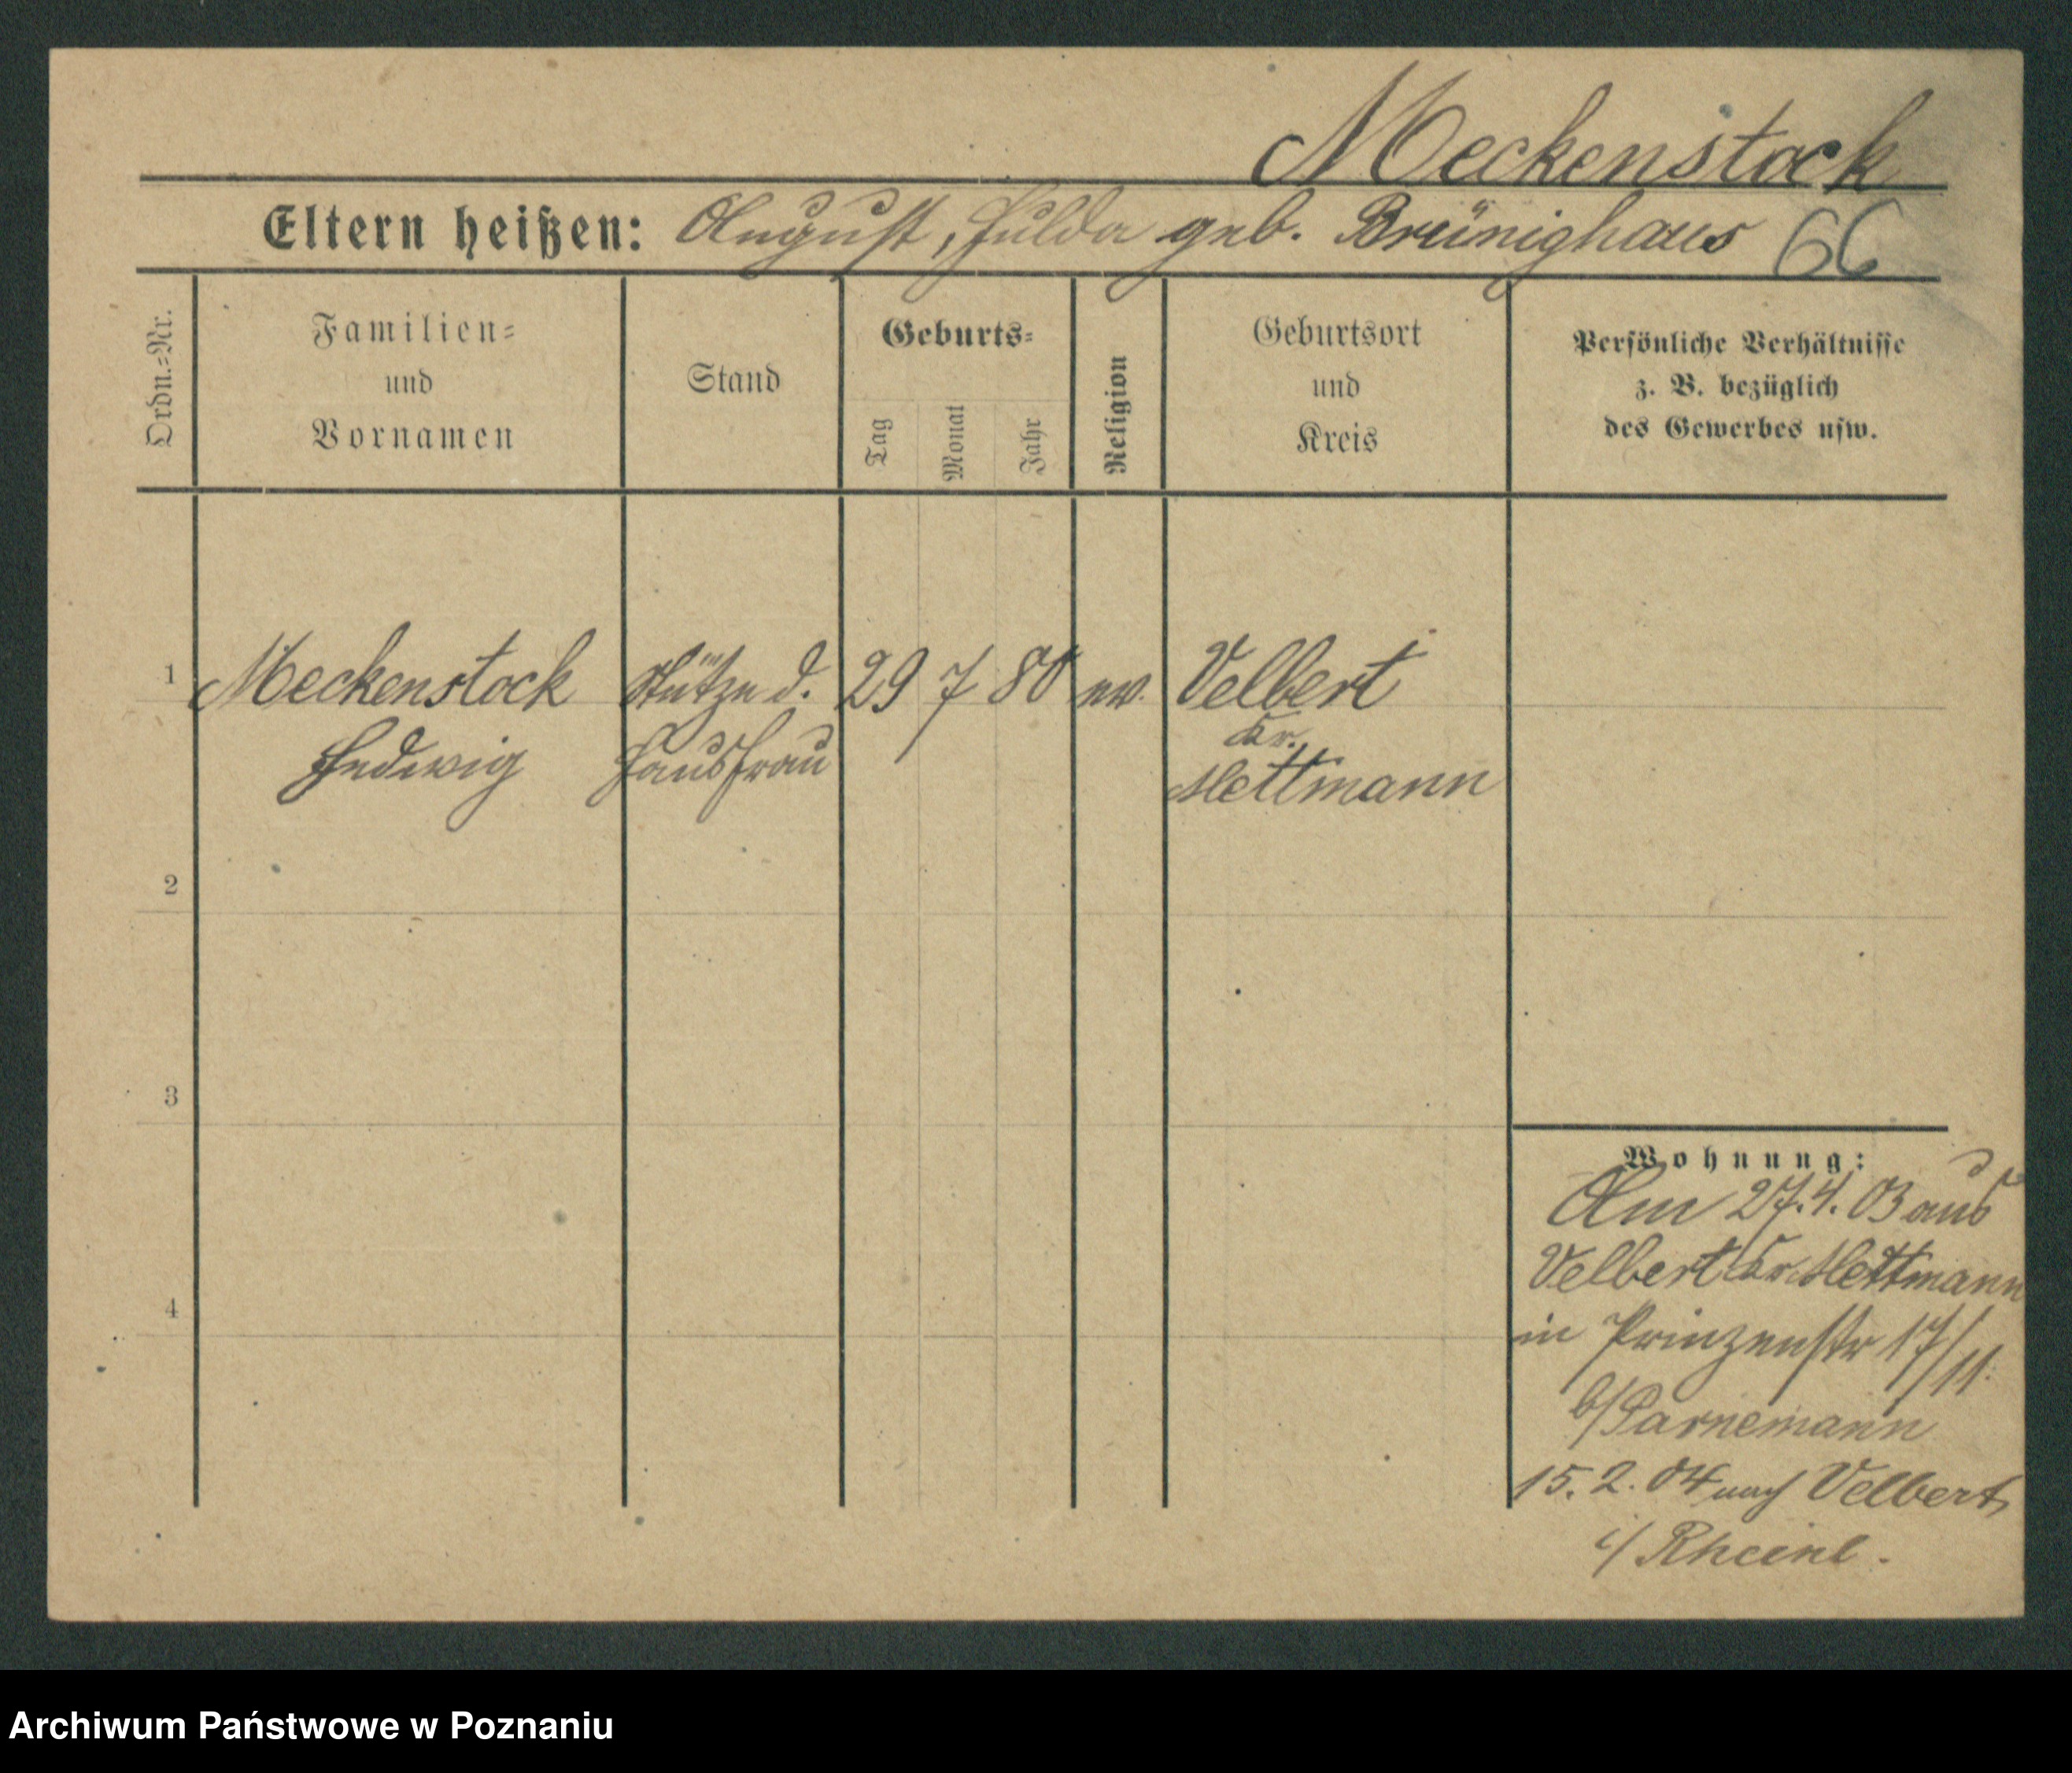 Meckenstock
Eltern heißen: August, Hulda geb. Breünighaus 66
Ordn.=Nr.
Familien=
und
Vornamen
Stand
Geburts=
Tag
Monat
Jahr
Religion
Geburtsort
und
Kreis
Persönliche Verhältnisse
z. B. bezüglich
des Gewerbes usw.
1 Meckenstock Stütze d. 29 7 80 ev. Velbert
Kr.
Hedwig Hausfrau Mettmann
2
3
4
Wohnung:
Am 27.4.03 aus
Velbert Kr. Mettmann
in Prinzenstr 17/11.
b/Parnemann
15.2.04 nach Velbert
i/ Rheinl.
Archiwum Państwowe w Poznaniu